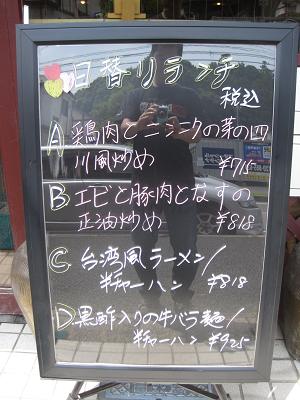 日替りランチ
税込
A 鶏肉とニンニクの芽の四
川風炒め ¥715
B エビと豚肉となすの
正油炒め ¥818
C 台湾風ラーメン/
半チャーハン ¥818
D 黒酢入りの牛バラ麺/
半チャーハン ¥925